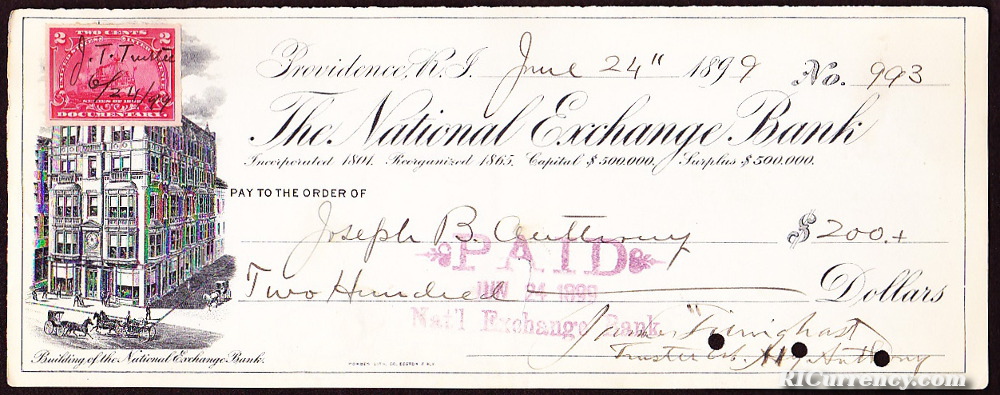 TWO CENTS
2 2
J. T. Trustee
6/24/99
SERIES OF 1898
DOCUMENTARY
Providence, R.I. June 24" 1899 No. 993
The National Exchange Bank
Incorporated 1801. Reorganized 1865. Capital $500,000. Surplus $500,000.
PAY TO THE ORDER OF
Joseph B. Anthony $200.+
PAID
Two Hundred Dollars
24 1899
Nat'l Exchange Bank
James Tillinghast
Trustee Anthony
Building of the National Exchange Bank.
RICurrency.com